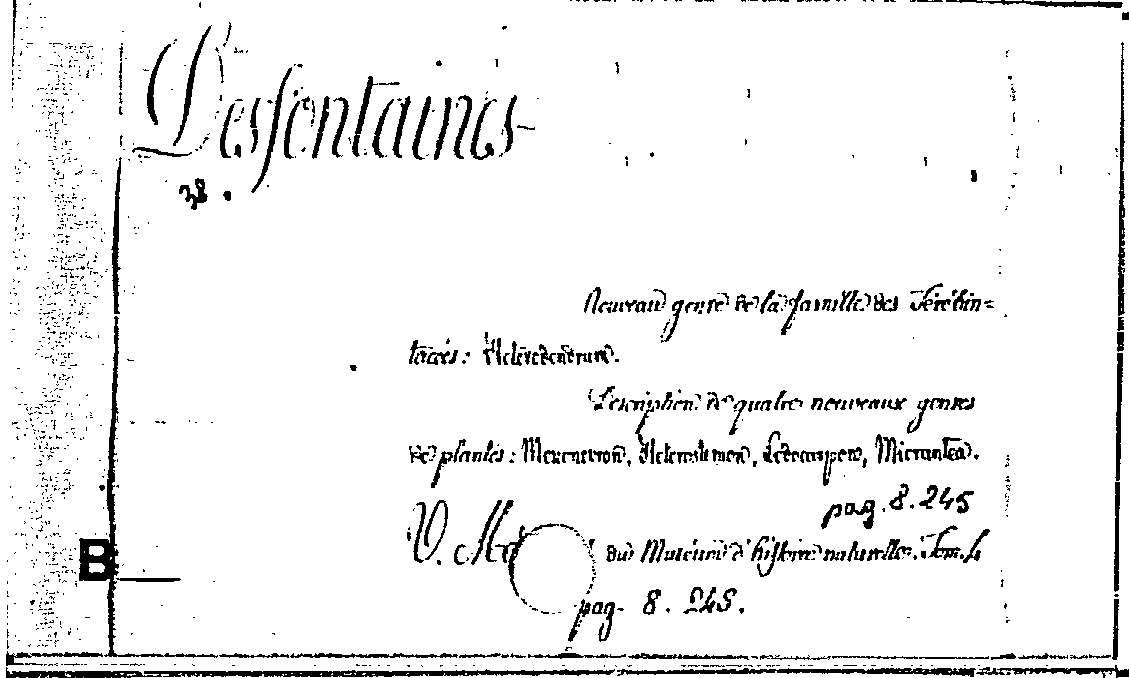 Desfontaines
38.
Nouveau genre de la famille des Térébin=
tacés: Heterodendrum.
Description de quatre nouveaux genres
de plantes: Heterostemon, Ledocarpon, Micrantea.
pag. 8. 245
V. du Muséum d'histoire naturelle. Tom. 4
pag. 8. 245.
B